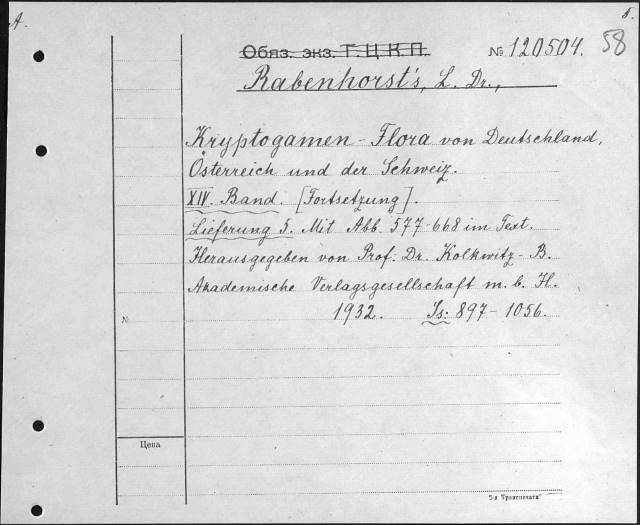 A.
5.
Обяз. экз. Г. Ц. К. П.
№ 120504.
58
Rabenhorst's, L. Dr.,
Kryptogamen-Flora von Deutschland,
Österreich und der Schweiz.
XIV. Band. [Fortsetzung].
Lieferung 5. Mit Abb. 577-668 im Text.
Herausgegeben von Prof. Dr. Kolkwitz-B.
Akademische Verlagsgesellschaft m. b. H.
1932. Is: 897-1056.
№
Цена
5-я Транспечати"